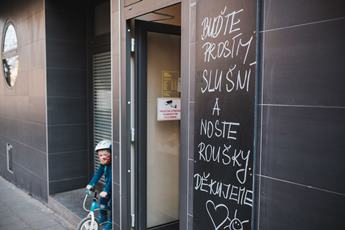 BUĎTE
PROSÍM,
SLUŠNÍ
A
NOSTE
ROUŠKY.
DĚKUJEME